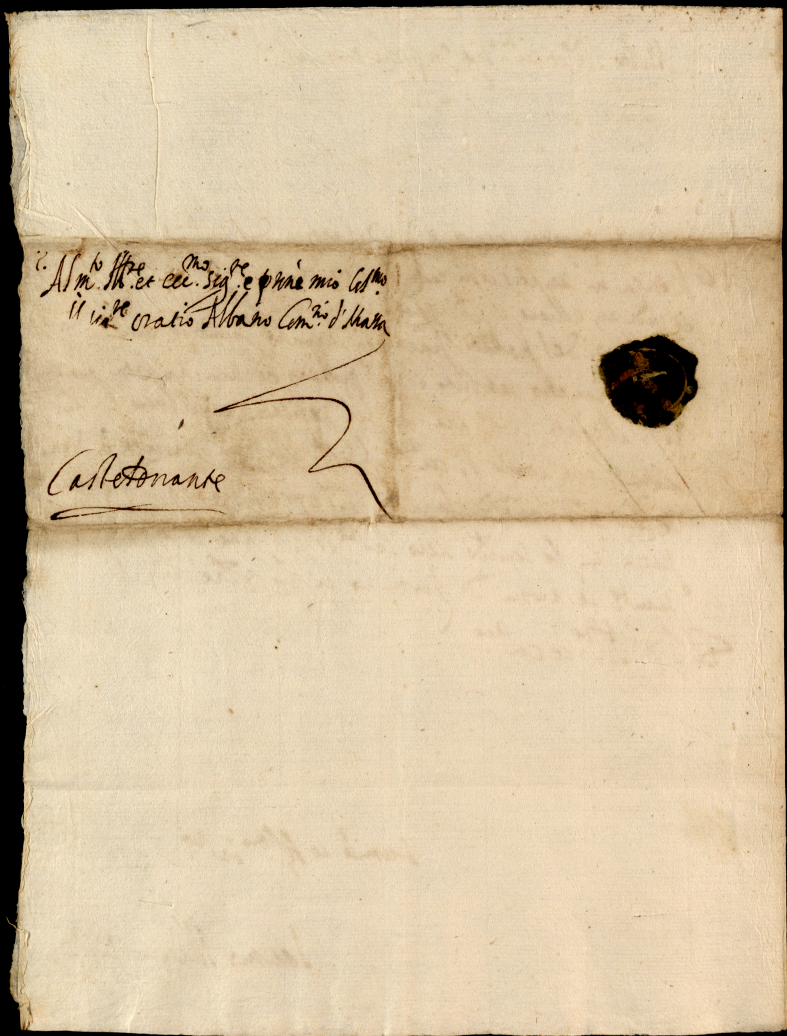 Al m.to Ill.re et ecc.mo sig.re e prone mio oss.mo
il sig.re oratio Albano Com.rio d' Massa
Casteldurante